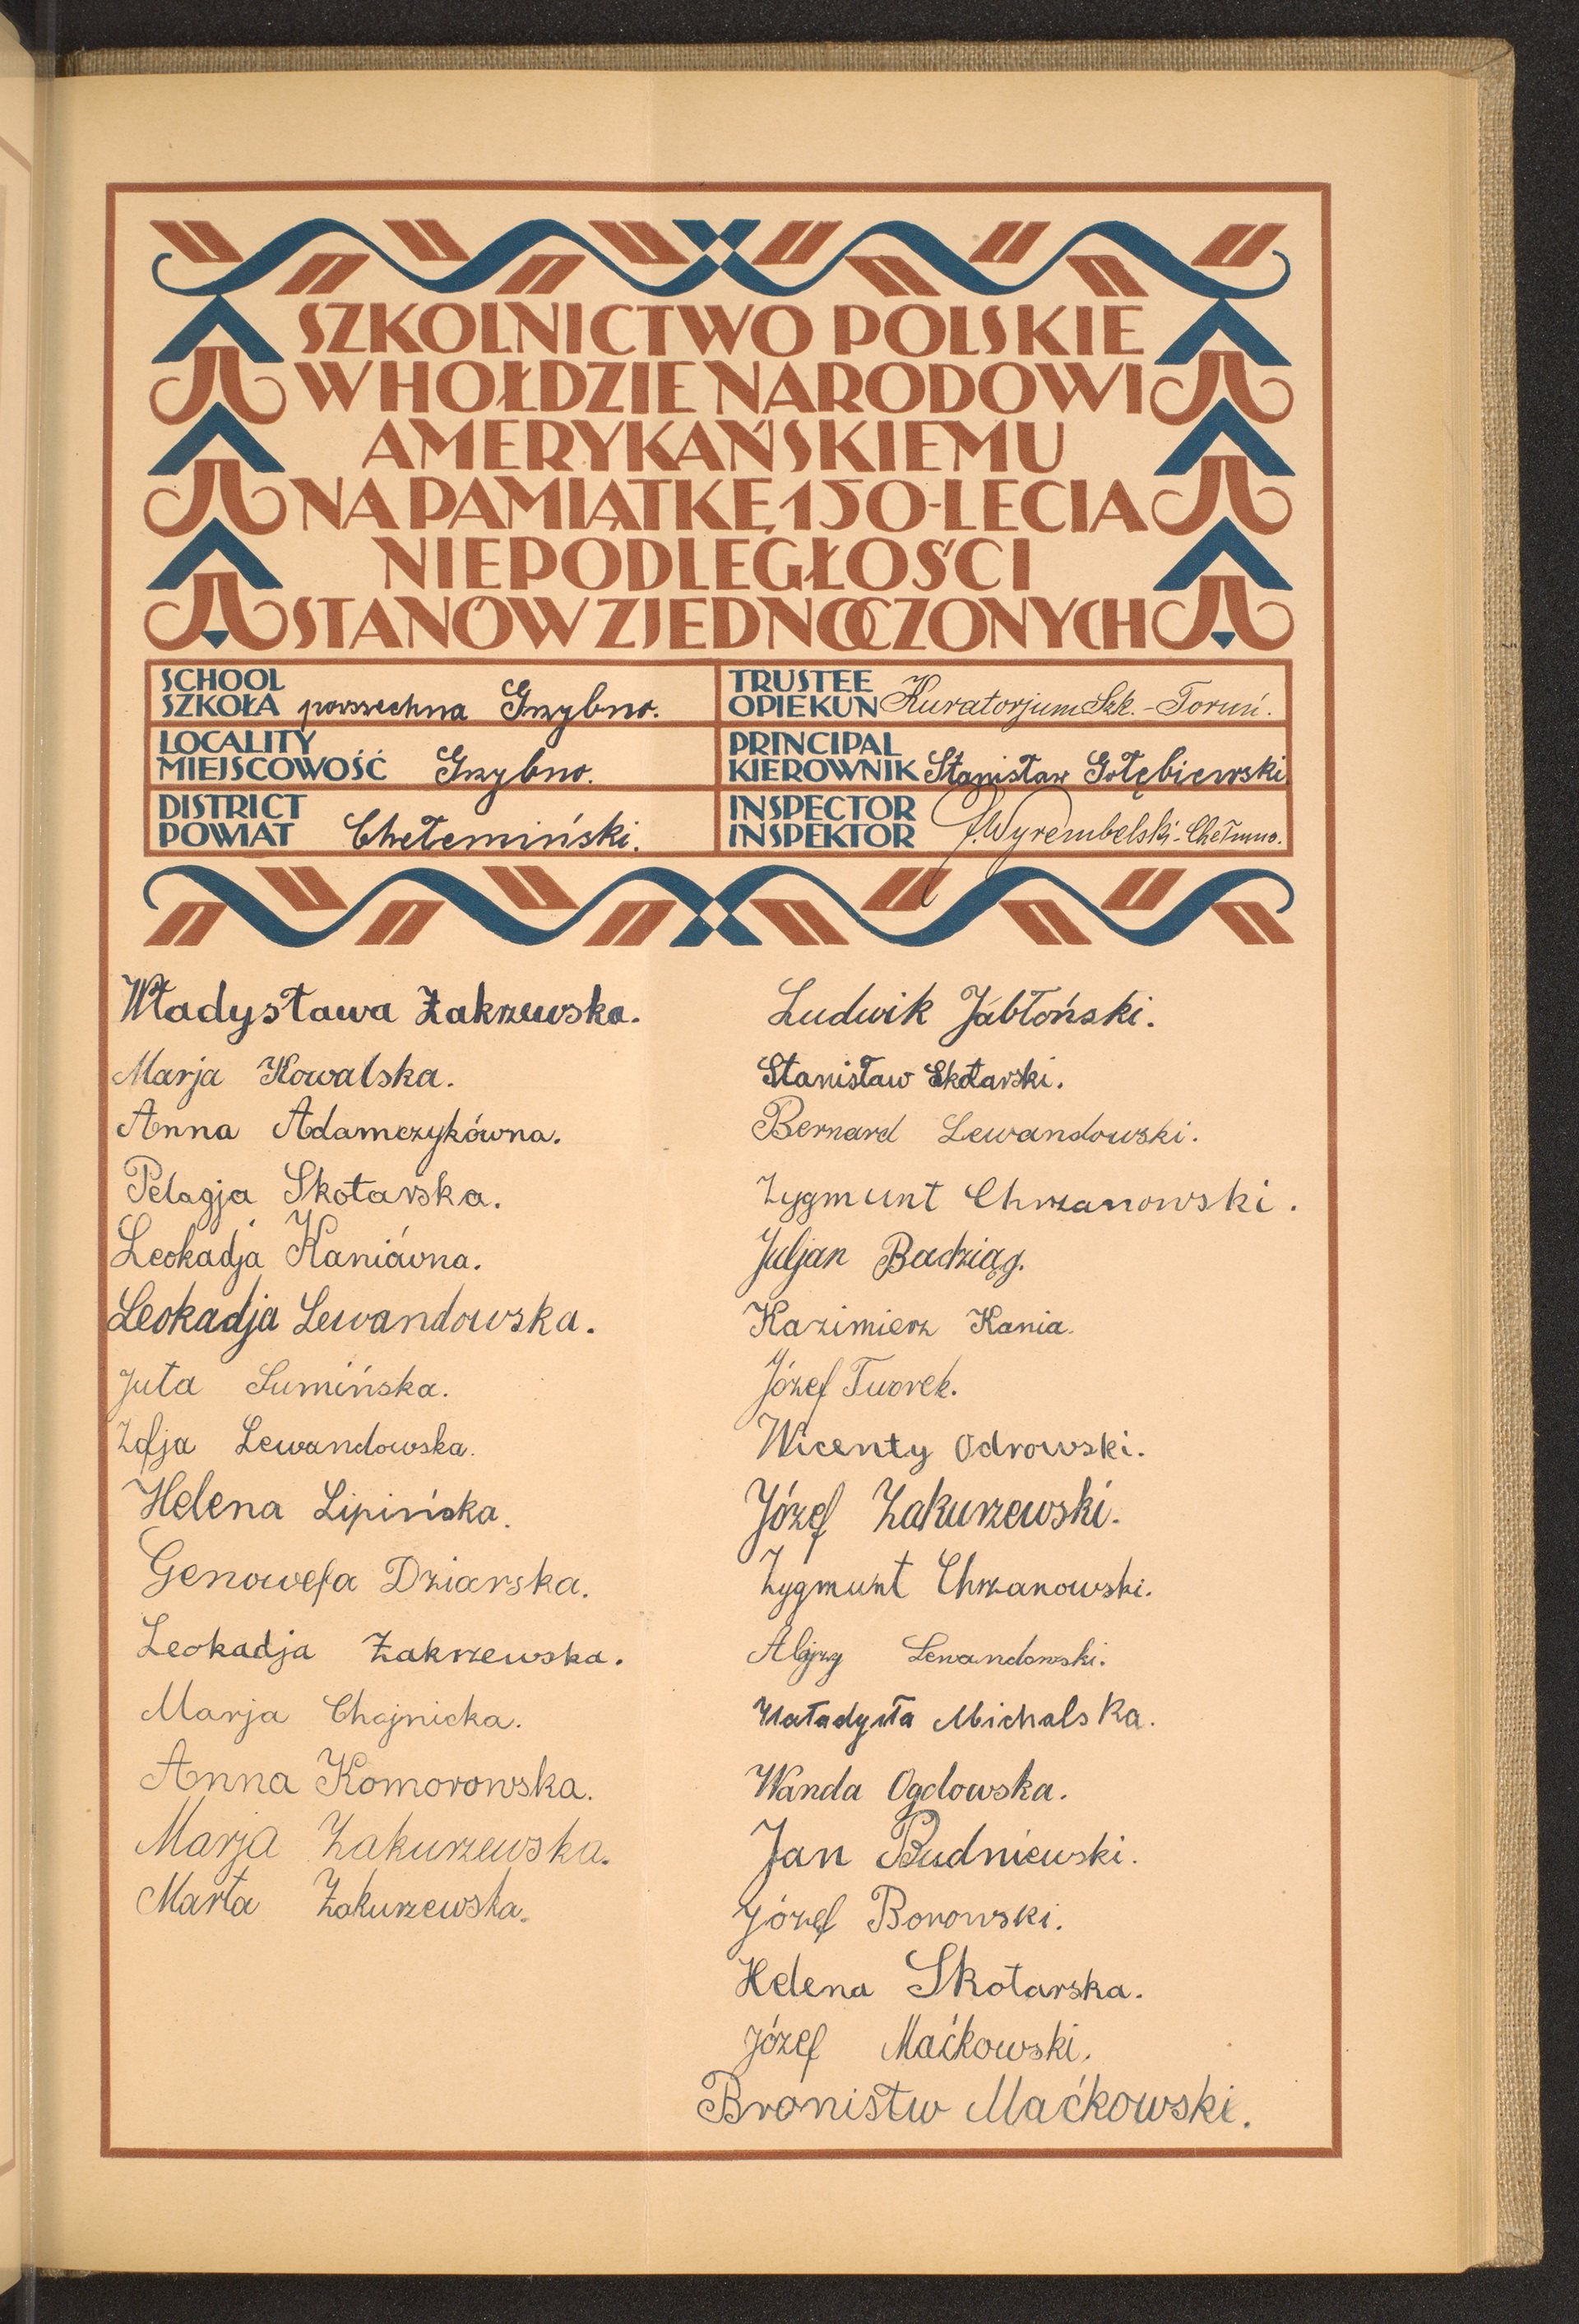 SZKOLNICTWO POLSKIE
W HOŁDZIE NARODOWI
AMERYKAŃSKIEMU
NA PAMIĄTKĘ 150-LECIA
NIEPODLEGŁOŚCI
STANÓW ZJEDNOCZONYCH
SCHOOL
SZKOŁA powszechna Grzybno.
TRUSTEE
OPIEKUN Kuratorjum Szk. - Toruń.
LOCALITY
MIEJSCOWOŚĆ Grzybno.
PRINCIPAL
KIEROWNIK Stanisław Gołębiewski
DISTRICT
POWIAT Chełemiński.
INSPECTOR
INSPEKTOR J. Wyrembelski - Chełmno.
Władysława Zakrzewska.
Marja Kowalska.
Anna Adamczykówna.
Pelagja Skotarska.
Leokadja Kaniówna.
Leokadja Lewandowska.
Juta Sumińska.
Zofja Lewandowska.
Helena Lipińska.
Genowefa Dziarska.
Leokadja Zakrzewska.
Marja Chojnicka.
Anna Komorowska.
Marja Zakurzewska.
Marta Zakurzewska.
Ludwik Jabłoński.
Stanisław Skotarski.
Bernard Lewandowski.
Zygmunt Chrzanowski.
Juljan Badziąg.
Kazimierz Kania.
Józef Tworek.
Wicenty Odrowski.
Józef Zakurzewski.
Zygmunt Chrzanowski.
Alojzy Lewandowski.
Michalska.
Wanda Ogdowska.
Jan Budniewski.
Józef Borowski.
Helena Skotarska.
Józef Maćkowski.
Bronistw Maćkowski.